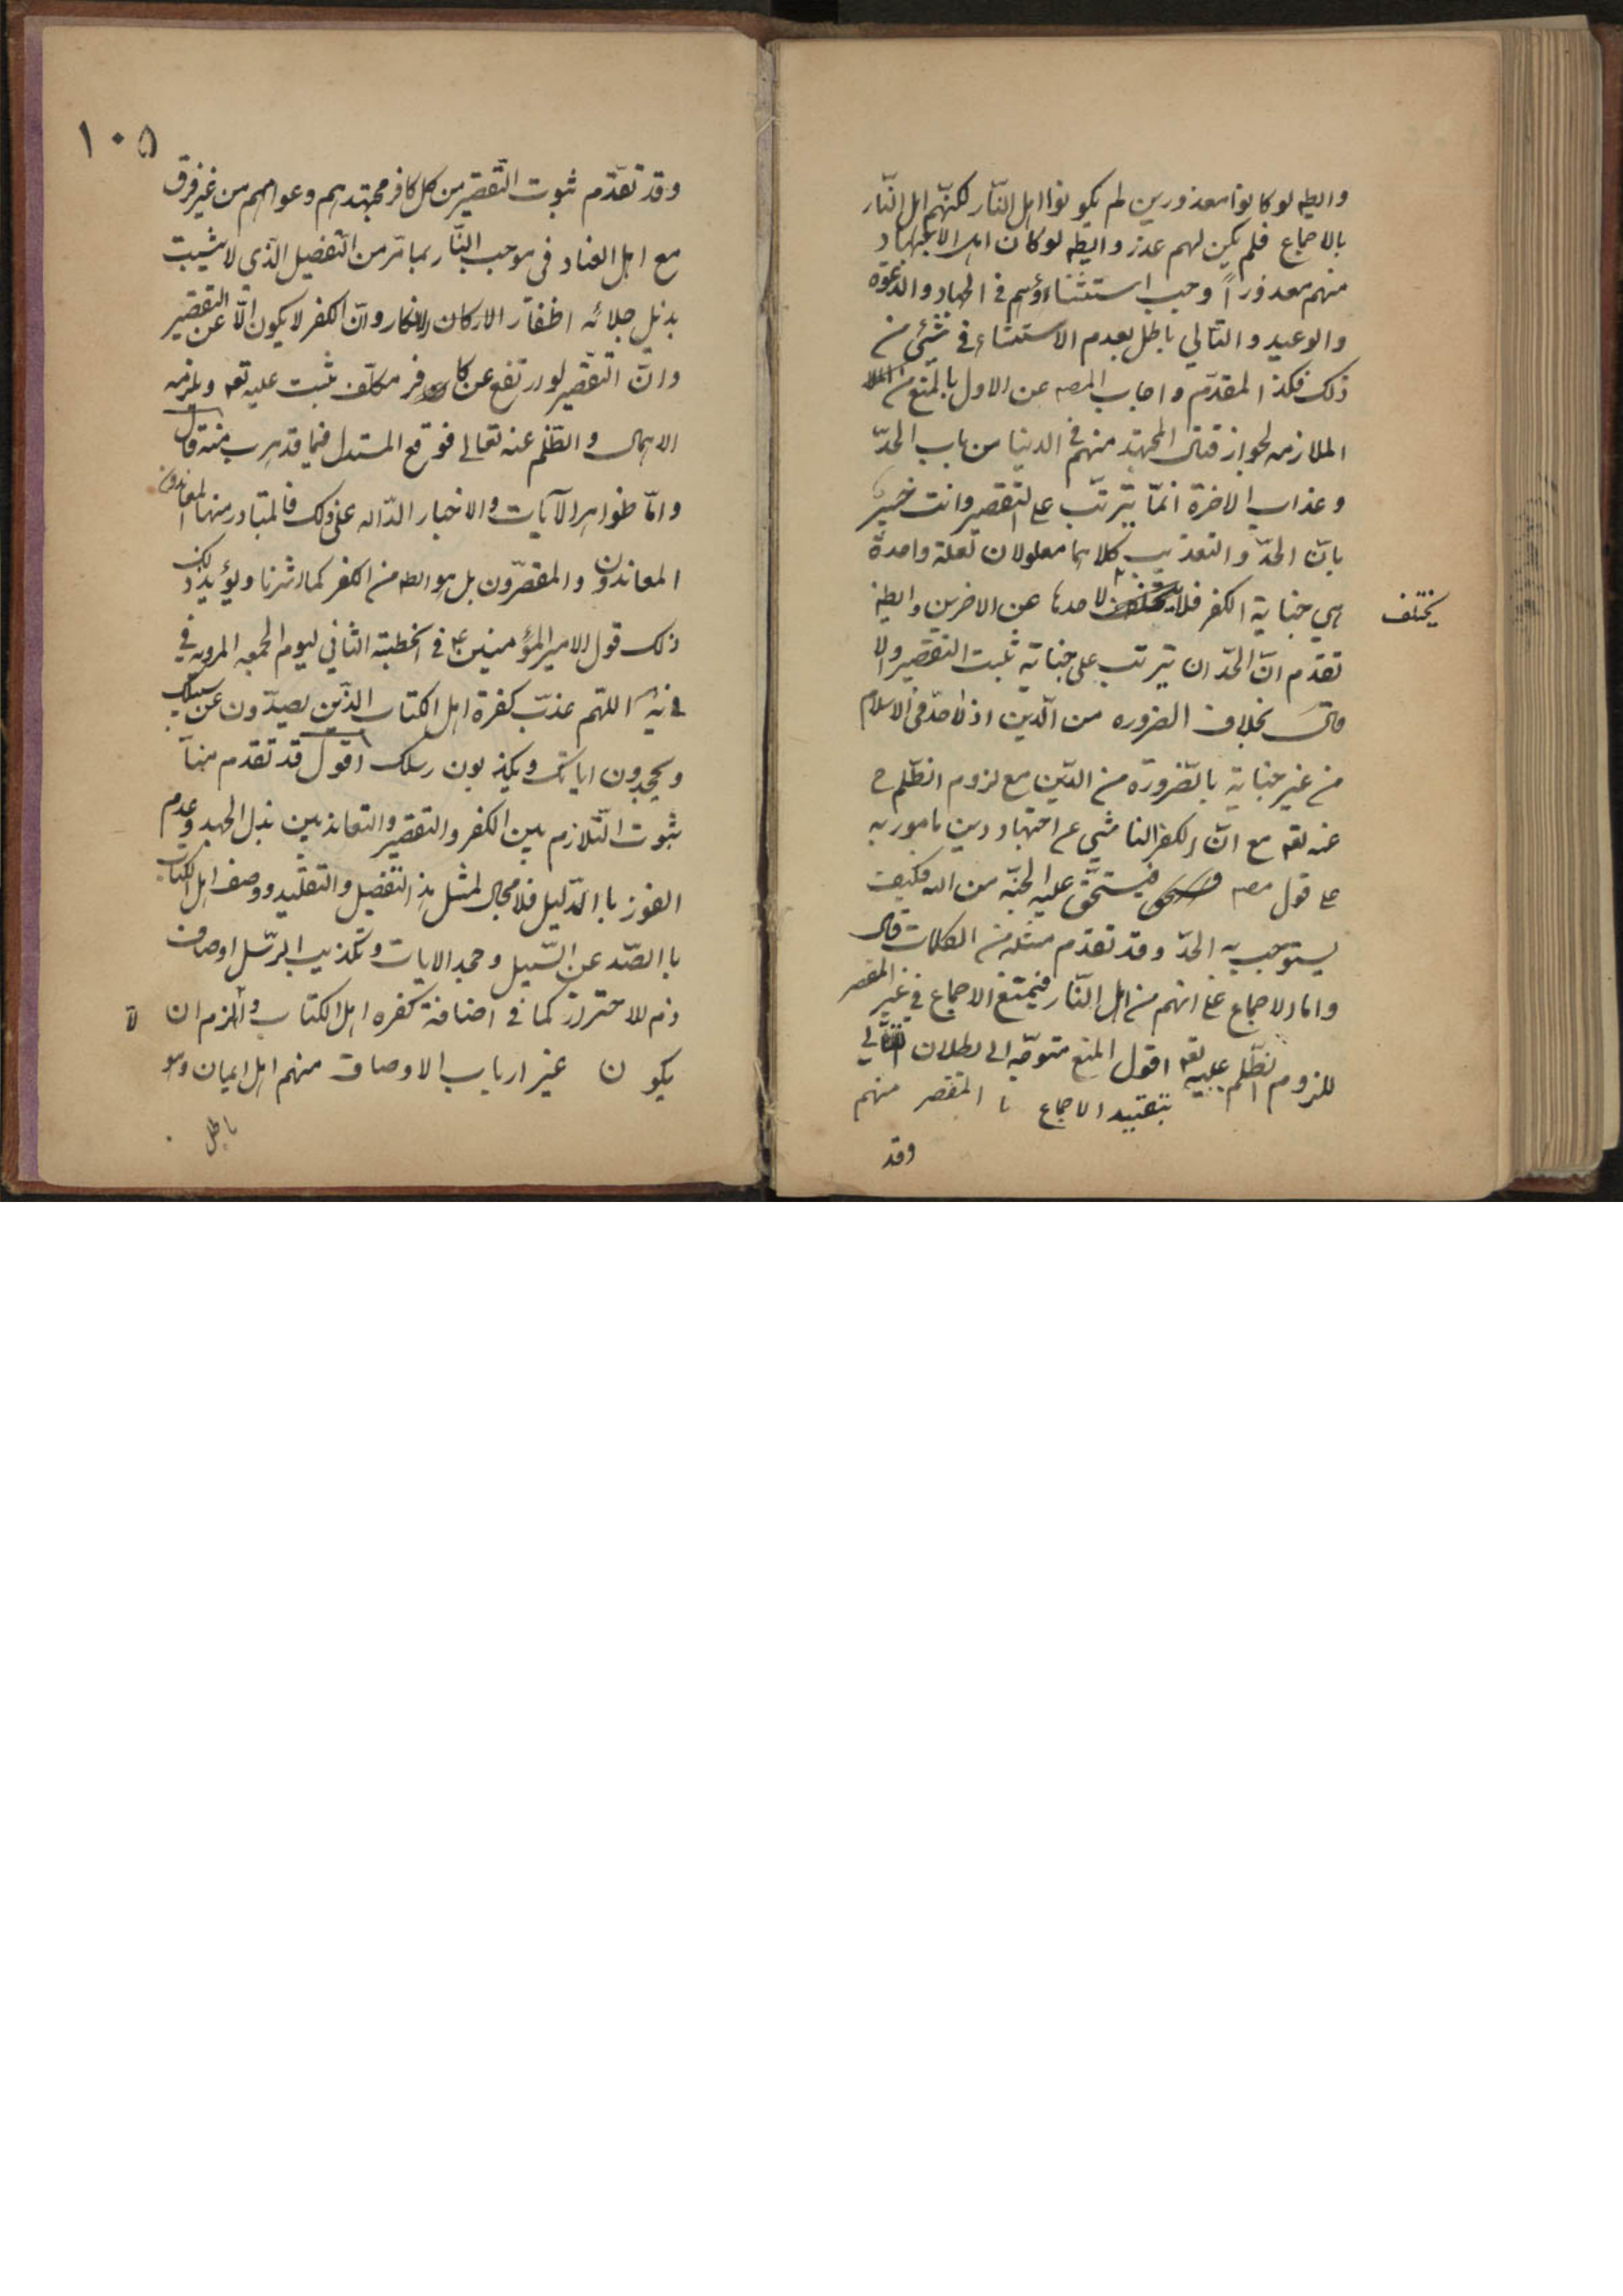 وايضه لو كانوا معذورين لم يكونوا اهل النّار لكنّهم اهل النّار
بالاجماع فلم يكن لهم عذر وايضه لو كان اهل الاجتهاد
منهم معذوراً وجب استثناؤهم في الجهاد والدعوة
والوعيد والتالي باطل بعدم الاستثناء في شئي من
ذلك فكذا المقدّم واجاب المصه عن الاول بالمنع من
الملازمه لجواز قتال المجتهد منهم في الدينا من باب الحدّ
وعذاب الاخرة انّما يترتّب على التقصير وانت خبير
بانّ الحدّ والتعذيب كلاهما معلولان لعلة واحدة
هي جناية الكفر فلا لاحدها عن الاخرين وايضه
يختلف
تقدم انّ الحدّ ان يترتب على جناته ثبت التقصير والا
قال بخلاف الضروره من الدّين اذ لا حدّ في الاسلام
من غير جناية بالضرورة من الدّين مع لزوم الظّلم ح
عنه تعه مع انّ الكفر الناشي عن اجتهاد دين مامور به
على قول مصه فيستحّق عليه الجنّه من الله فكيف
يستوجب به الحدّ وقد تقدم مثله من الكلمات قال
وامّا الاجماع على انهم من اهل النّار فيمتنع الاجماع في غير المقصر
للزوم الظّلم عليه تعه اقول المنع متوجّه الى بطلان التّالي
بتقييد الاجماع با المقصر منهم
وقد
١٠٥
وقد تقدّم ثبوت التّقصير من كل كافر مجتهدهم وعوامهم من غير فرق
مع اهل العناد في موجب النّار بما مرّ من التّفصيل الّذي لا يثبت
بذيل جلائه اظفار الاركان والانكار وانّ الكفر لا يكون الّا عن التقصير
وانّ التّقصير لو ارتفع عن كافر مكلّف ثبت عليه تعه ويلزمه
الاهمال والظّلم عنه تعالى فوقع المستدل فيما قد هرب منه قال
وامّا ظواهر الآيات والاخبار الدّاله على ذلك فالمتبادر منها المعاندون
المعاندون والمقصّرون بل هو ايضه من الكفر كما اشرنا ويؤيد ذلك
ذلك قول الامير المؤمنين ع في الخطبته الثاني ليوم الجمعه المرويه في
في يه اللهّم عذّب كفرة اهل الكتاب الذّين يصدّون عن سبيلك
ويجحدون اياتك ويكذبون رسلك اقول قد تقدم منّا
ثبوت التّلازم بين الكفر والتقصير والتعاند بين بذل الجهد وعدم
الفوز با الدّليل فلا مجال لمثل هذ التفصيل والتقلّيد ووصف اهل الكتاب
با الصّد عن السّبيل وجحد الايات وتكذيب الرّسل اوصاف
ذم للاحتراز كما في اضافة كفره اهل الكتاب والّزم ان لا
يكون غير ارباب الاوصاف منهم اهل ايمان وهو
باطل